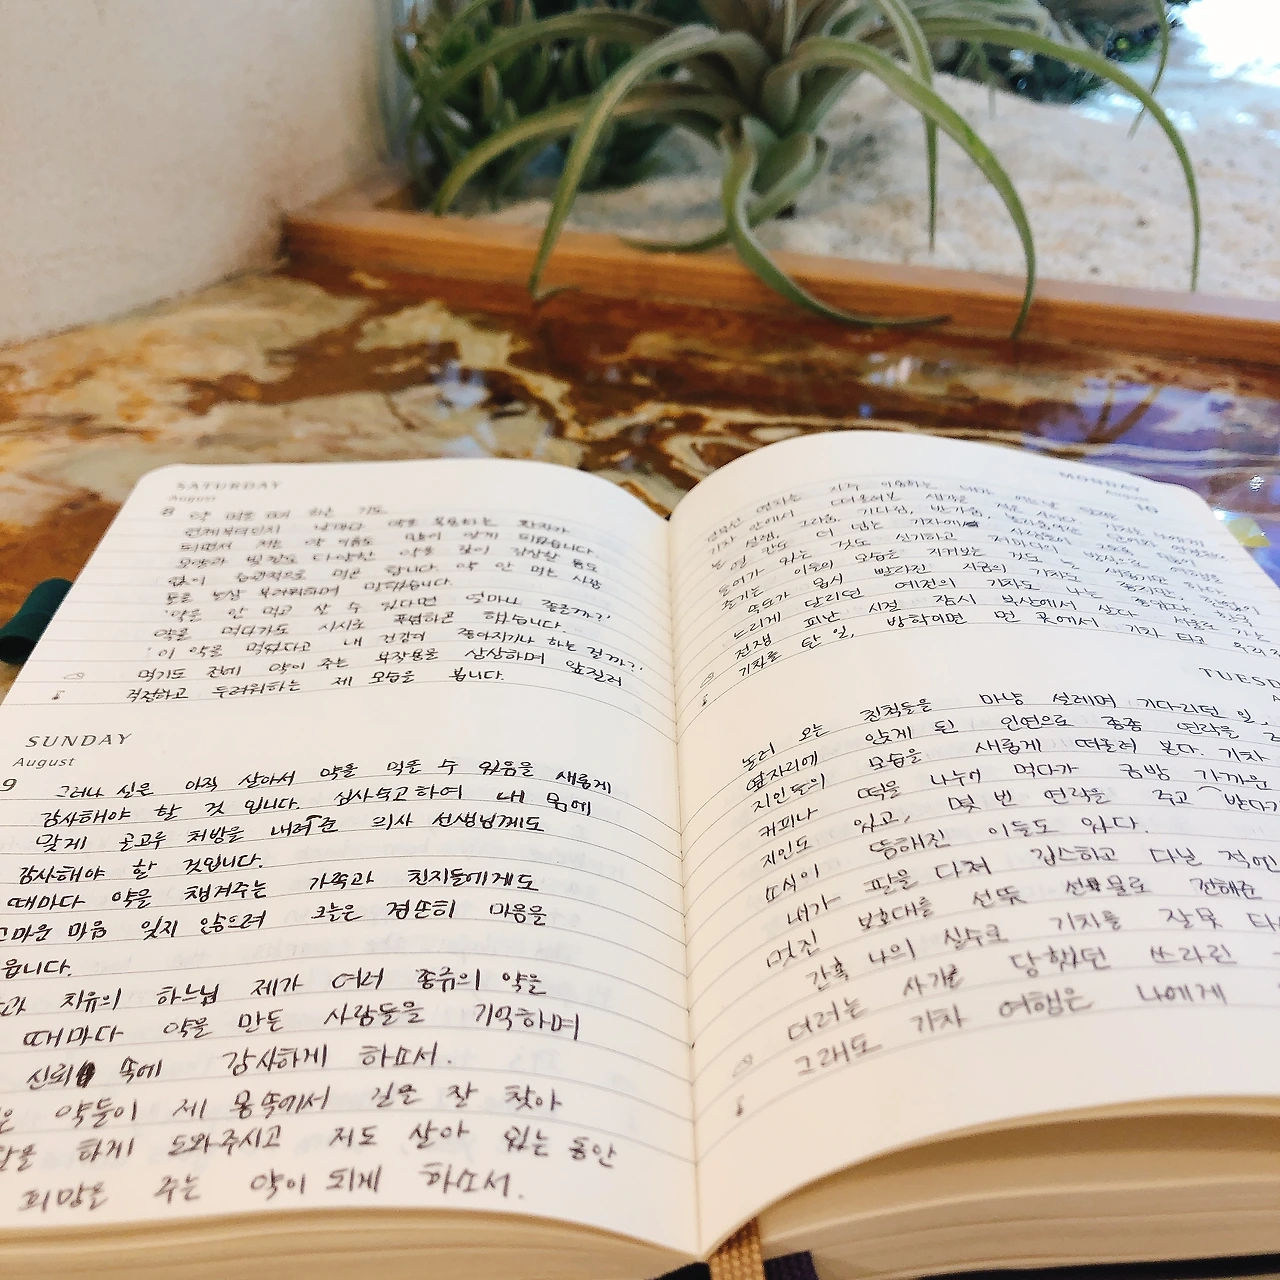 SATURDAY
August
8 약 먹을 때 하는 기도
언제부터인지 날마다 약을 복용하는 환자가
되면서 저는 약 이름도 많이 알게 되었습니다.
모양과 빛깔도 다양한 약을 깊이 감상할 틈도
없이 습관적으로 먹곤 합니다. 약 안 먹는 사람
들을 늘상 부러워하며 말했습니다.
'약을 안 먹고 살 수 있다면 얼마나 좋을까?'
약을 먹다가도 시시로 푸념하곤 했습니다.
'이 약을 먹는다고 내 건강이 좋아지기나 하는 걸까?'
먹기도 전에 약이 주는 부작용을 상상하며 앞질러
걱정하고 두려워하는 제 모습을 봅니다.
SUNDAY
August
9 그러나 실은 아직 살아서 약을 먹을 수 있음을 새롭게
감사해야 할 것 입니다. 심사숙고하여 내 몸에
맞게 골고루 처방을 내려 준 의사 선생님께도
감사해야 할 것입니다.
때마다 약을 챙겨주는 가족과 친지들에게도
고마운 마음 잊지 않으려 오늘은 겸손히 마음을
치유의 하느님 제가 여러 종류의 약을
때마다 약을 만든 사람들을 기억하며
신뢰 속에 감사하게 하소서.
약들이 제 몸속에서 길을 잘 찾아
하게 도와주시고 저도 살아 있는 동안
희망을 주는 약이 되게 하소서.
MONDAY
August
10
기차 안에서 떠올려본 생각을 적은 시다.
기차 설렘, 그리움, 기다림, 반가움,
들어가 있는 것도 신기하고
즐기는 이들의 모습을 지켜보는 것도
속도가 몹시 빨라진 지금의 기차도 나는 좋지만
느리게 달리던 예전의 기차도
전쟁 피난 시절 잠시 부산에서 살다 서울로 가는
기차를 탄 일, 방학이면 먼 곳에서 기차 타고 우리
TUESD
놀러 오는 친척들을 마냥 설레며 기다리던 일,
옆자리에 앉게 된 인연으로 종종 연락을
지인들의 모습을 새롭게 떠올려 본다. 기차
커피나 떡을 나누어 먹다가 금방 가까운
지인도 있고, 몇 번 연락을 주고 받다가
소식이 뜸해진 이들도 있다.
내가 팔을 다쳐 깁스하고 다닐 적엔
멋진 보호대를 선뜻 선물로 전해준
간혹 나의 실수로 기차를 잘못 타
더러는 사기를 당했던 쓰라린
그래도 기차 여행은 나에게